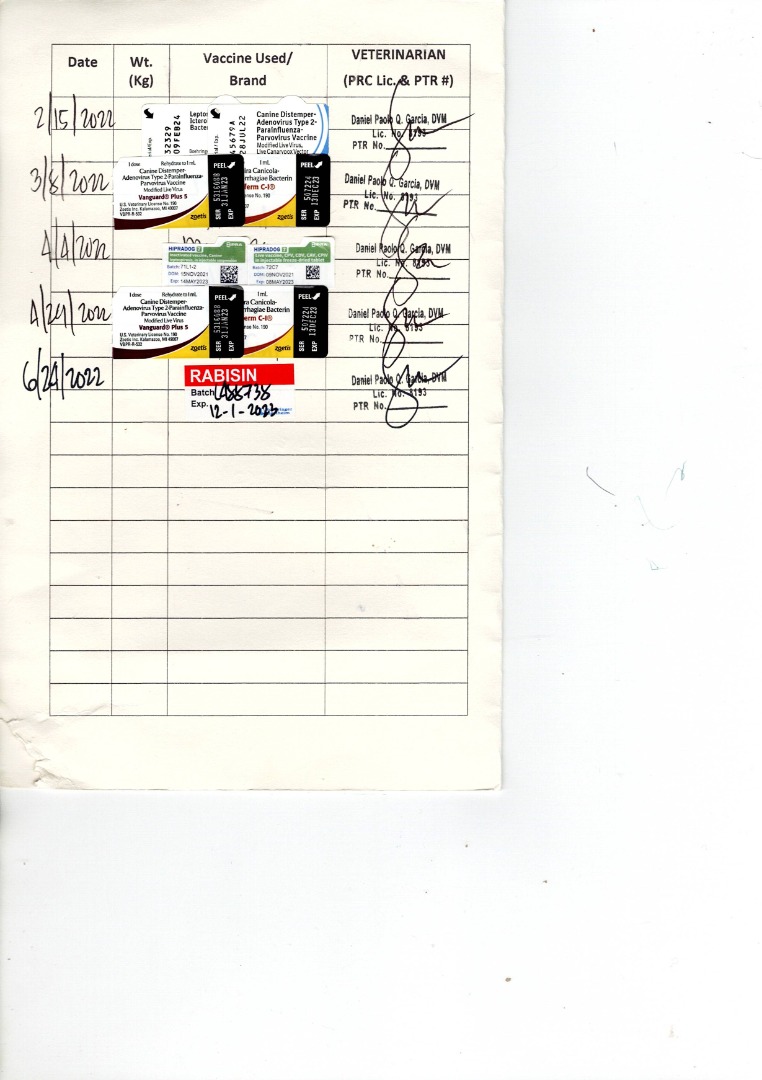 Date Wt. (Kg) Vaccine Used/ Brand VETERINARIAN (PRC Lic. & PTR #)
2/15/2022
32329
09FEB24
Lepto
Ictero
Bacter
45679A
28JUL22
Canine Distemper-
Adenovirus Type 2-
Parainfluenza-
Parvovirus Vaccine
Modified Live Virus,
Live Canarypox Vector
Daniel Paolo Q. Garcia, DVM
Lic. No. 8193
PTR No.
3/8/2022
1 dose Rehydrate to 1 mL
Canine Distemper-
Adenovirus Type 2-Parainfluenza-
Parvovirus Vaccine
Modified Live Virus
Vanguard® Plus 5
U.S. Veterinary License No. 190
Zoetis Inc. Kalamazoo, MI 49007
VBPR-R-532
zoetis
PEEL
SER 5316088
EXP 31JAN23
1 mL
ra Canicola-
rrhagiae Bacterin
erm C-I®
nse No. 190
zoetis
PEEL
SER 507224
EXP 13DEC23
Daniel Paolo Q. Garcia, DVM
Lic. No. 8193
PTR No.
4/4/2022
HIPRADOG
Inactivated vaccine, Canine
Batch: 71L1-2
DOM: 15NOV2021
Exp: 14MAY2023
HIPRADOG
Live vaccine, CPV, CDV, CAV, CPiV
in injectable freeze-dried tablet
Batch: 72C7
DOM: 09NOV2021
Exp: 08MAY2023
Daniel Paolo Q. Garcia, DVM
Lic. No. 8193
PTR No.
4/29/2022
1 dose Rehydrate to 1 mL
Canine Distemper-
Adenovirus Type 2-Parainfluenza-
Parvovirus Vaccine
Modified Live Virus
Vanguard® Plus 5
U.S. Veterinary License No. 190
Zoetis Inc. Kalamazoo, MI 49007
VBPR-R-532
zoetis
PEEL
SER 5316088
EXP 31JAN23
1 mL
ra Canicola-
rrhagiae Bacterin
erm C-I®
nse No. 190
zoetis
PEEL
SER 507224
EXP 13DEC23
Daniel Paolo Q. Garcia, DVM
Lic. No. 8193
PTR No.
6/29/2022
RABISIN
Batch
Exp. 12-1-2023
Daniel Paolo Q. Garcia, DVM
Lic. No. 8193
PTR No.